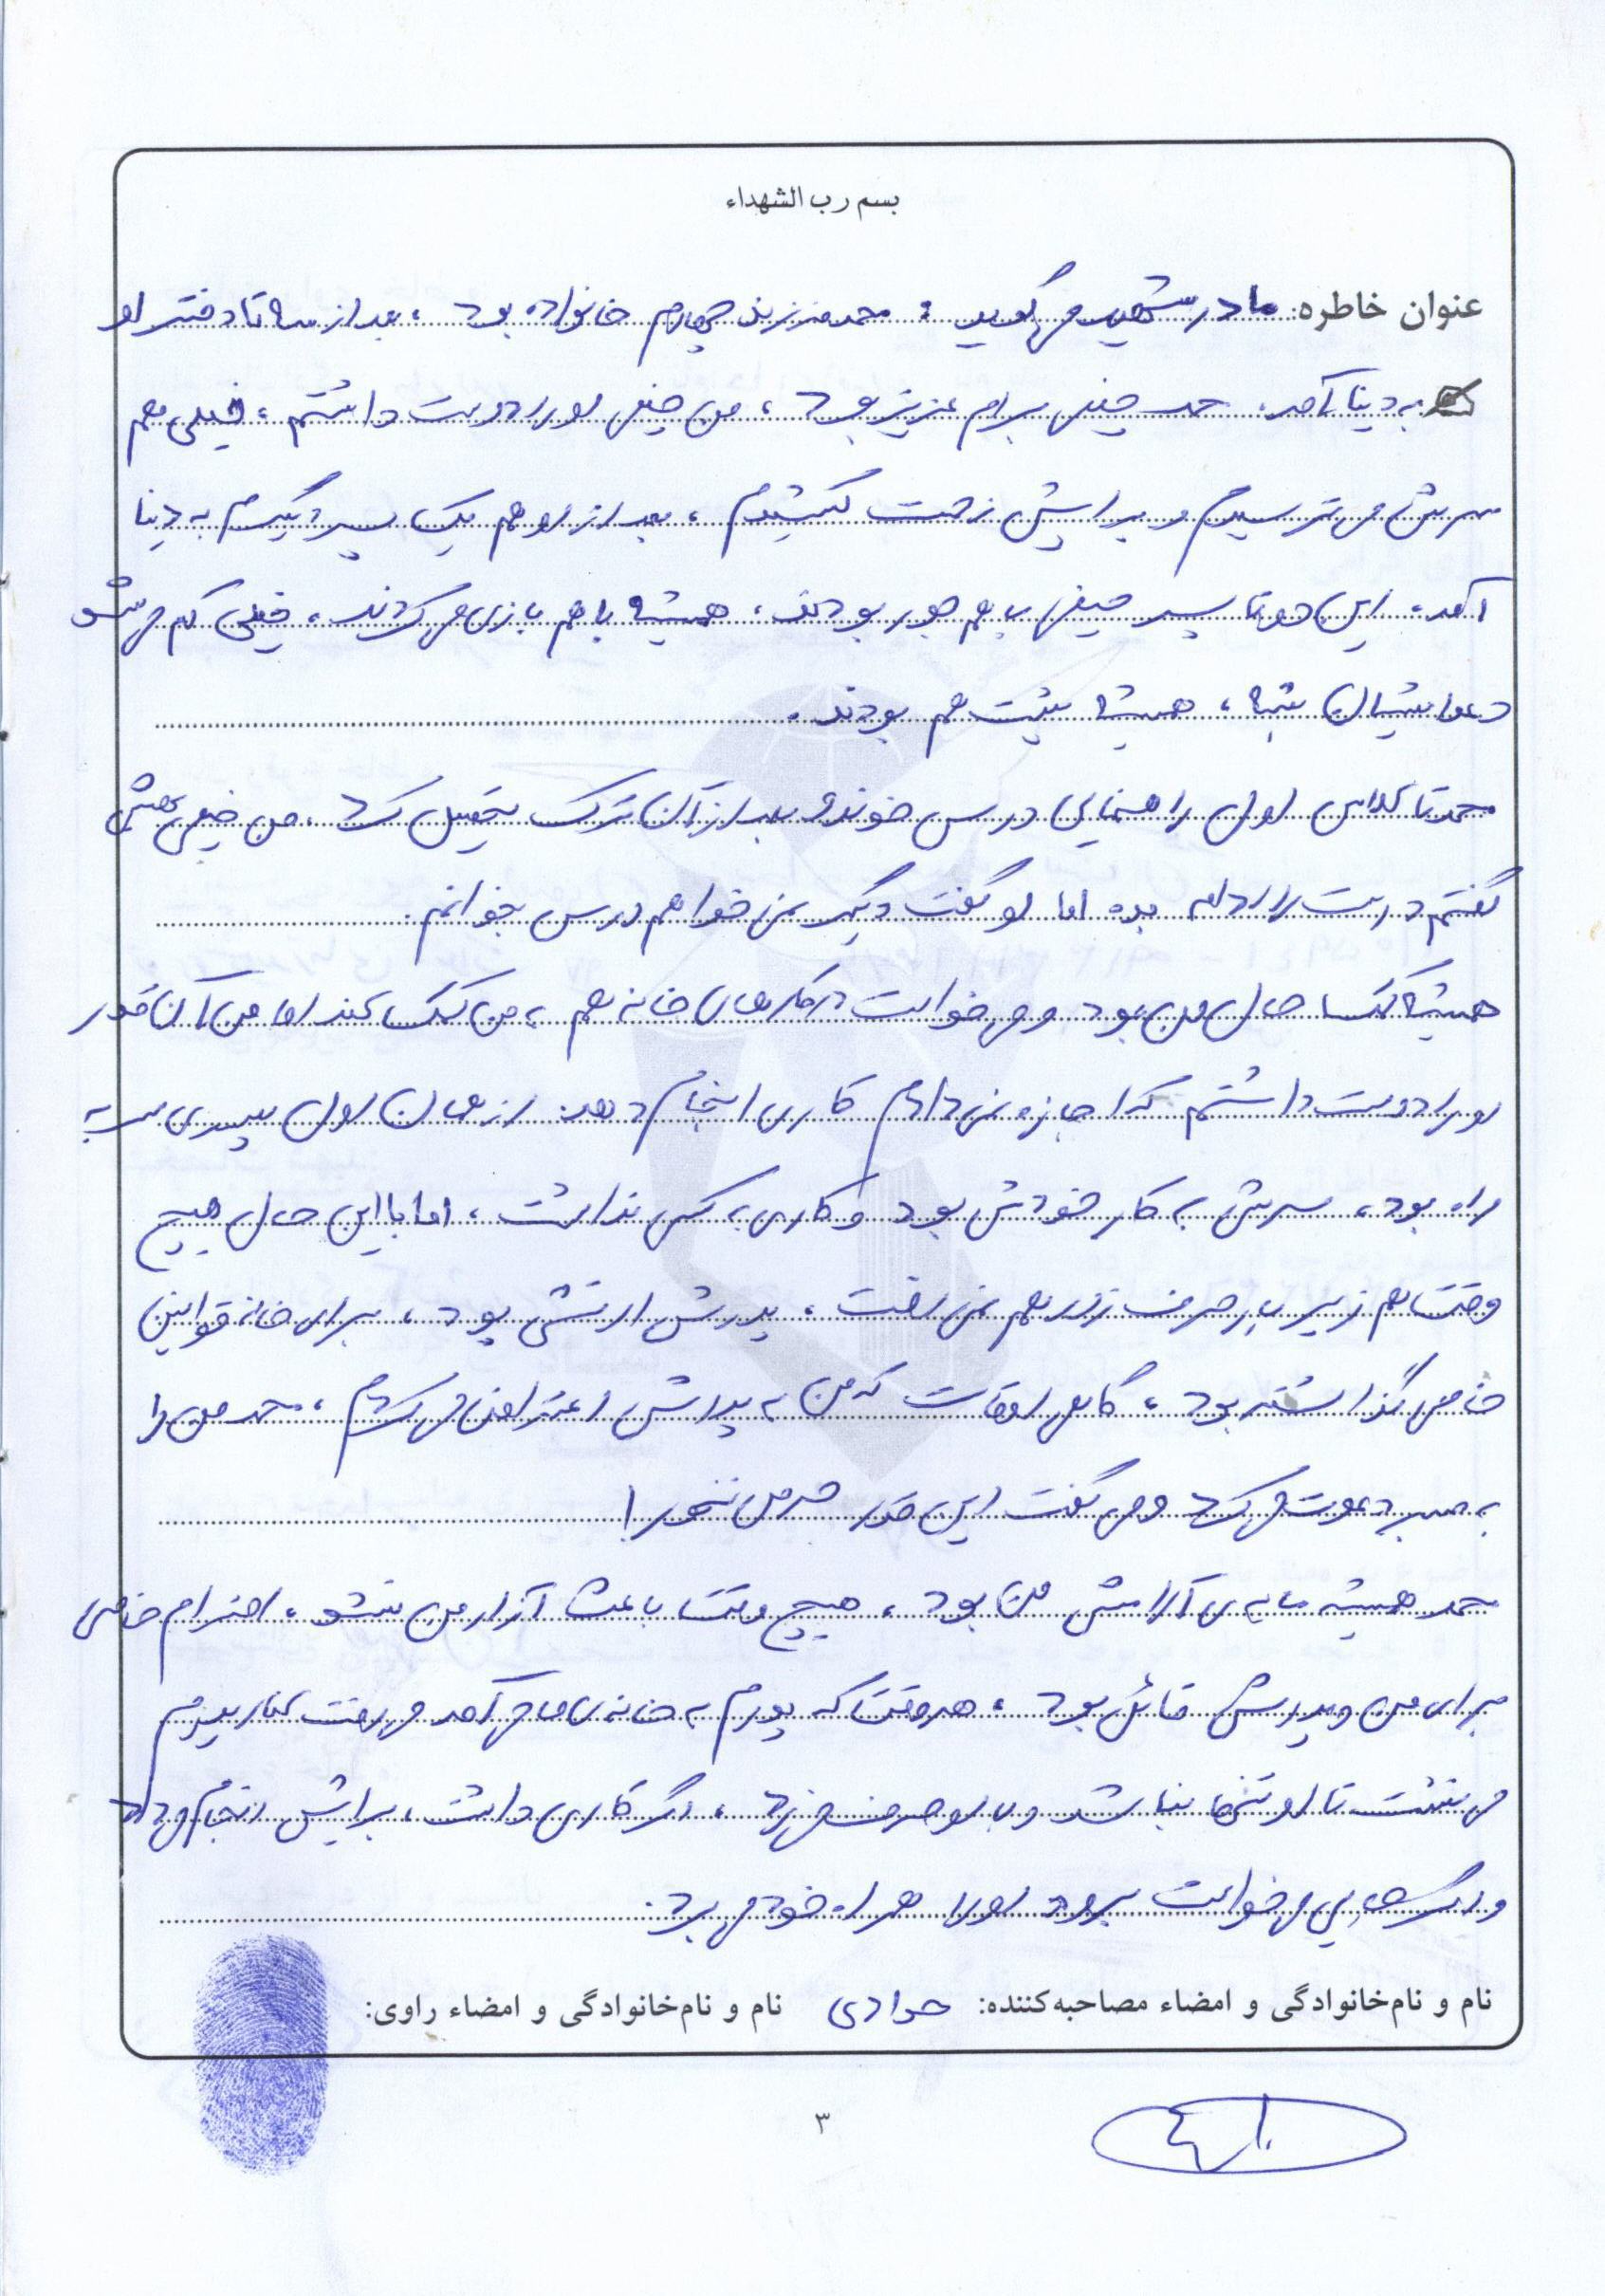 بسم رب الشهداء
عنوان خاطره: مادر شهید می گوید : محمد فرزند چهارم خانواده بود ، بعد از سه تا دختر او
به دنیا آمد. محمد خیلی برام عزیز بود ، من خیلی او را دوست داشتم ، خیلی هم
سرش می ترسیدم و برایش زحمت کشیدم ، بعد از او هم یک پسر دیگرم به دنیا
آمد ، این دوتا پسر خیلی باهم جور بودند ، همیشه با هم بازی می کردند ، خیلی کم می شد
دعوایشان بشه ، همیشه پشت هم بودند .
محمد تا کلاس اول راهنمایی درس خوند و بعد از آن ترک تحصیل کرد . من خیلی بهش
گفتم درست را ادامه بده اما او گفت دیگر نمی خواهم درس بخوانم .
همیشه کمک حال من بود و می خواست در کارهای خانه هم به من کمک کند اما من آن قدر
او را دوست داشتم که اجازه نمی دادم کاری انجام دهد از همان اول پسری سر به
راه بود ، سرش به کار خودش بود و کاری به کسی نداشت ، اما با این حال هیچ
وقت هم زیر بار حرف زور هم نمی رفت ، پدرش ارتشی بود ، برای خانه قوانین
خاصی گذاشته بود ، گاهی اوقات که من به پدرش اعتراض می کردم ، محمد من را
به صبر دعوت می کرد و می گفت این قدر حرص نخور !
محمد همیشه مایه ی آرامش من بود ، هیچ وقت باعث آزار من نشد ، احترام خاصی
برای من و پدرش قائل بود ، هر وقت که پدرم به خانه ی ما می آمد می رفت کنار پدرم
می نشست تا او تنها نباشد و با او حرف می زد ، اگر کاری داشت ، برایش انجام می داد
و اگر جایی می خواست برود او را همراه خود می برد .
نام و نام‌خانوادگی و امضاء مصاحبه‌کننده: جوادی نام و نام‌خانوادگی و امضاء راوی:
۳